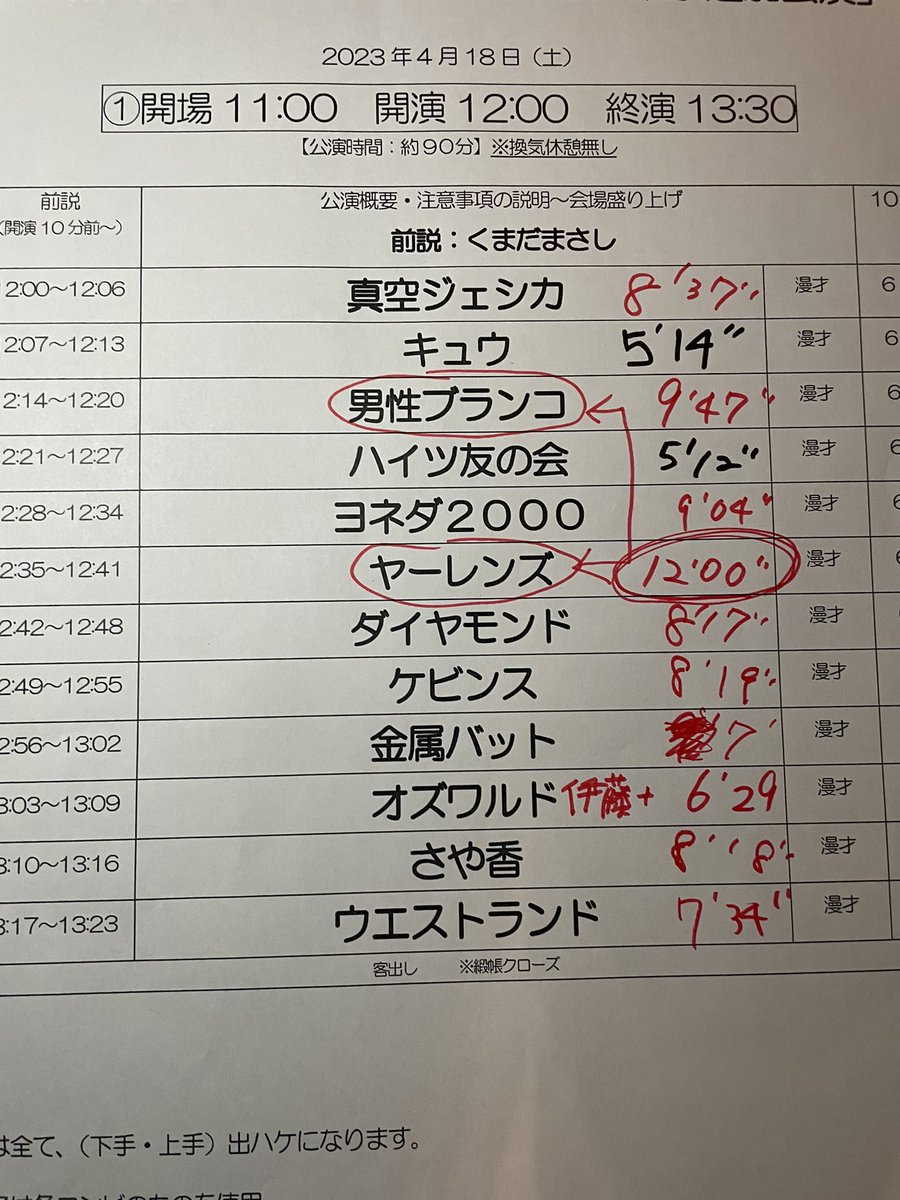 2023年4月18日（土）
①開場 11:00　開演 12:00　終演 13:30
【公演時間：約90分】※換気休憩無し
前説
（開演10分前～）
公演概要・注意事項の説明～会場盛り上げ
前説：くまだまさし
10
12:00～12:06 真空ジェシカ 8'37" 漫才 6
2:07～12:13 キュウ 5'14" 漫才 6
2:14～12:20 男性ブランコ 9'47" 漫才 6
2:21～12:27 ハイツ友の会 5'12" 漫才 6
2:28～12:34 ヨネダ2000 9'04" 漫才 6
2:35～12:41 ヤーレンズ 12'00" 漫才 6
2:42～12:48 ダイヤモンド 8'17" 漫才
2:49～12:55 ケビンス 8'19" 漫才
2:56～13:02 金属バット 7' 漫才
3:03～13:09 オズワルド 伊藤+ 6'29 漫才
3:10～13:16 さや香 8'18" 漫才
3:17～13:23 ウエストランド 7'34" 漫才
客出し　※緞帳クローズ
は全て、（下手・上手）出ハケになります。